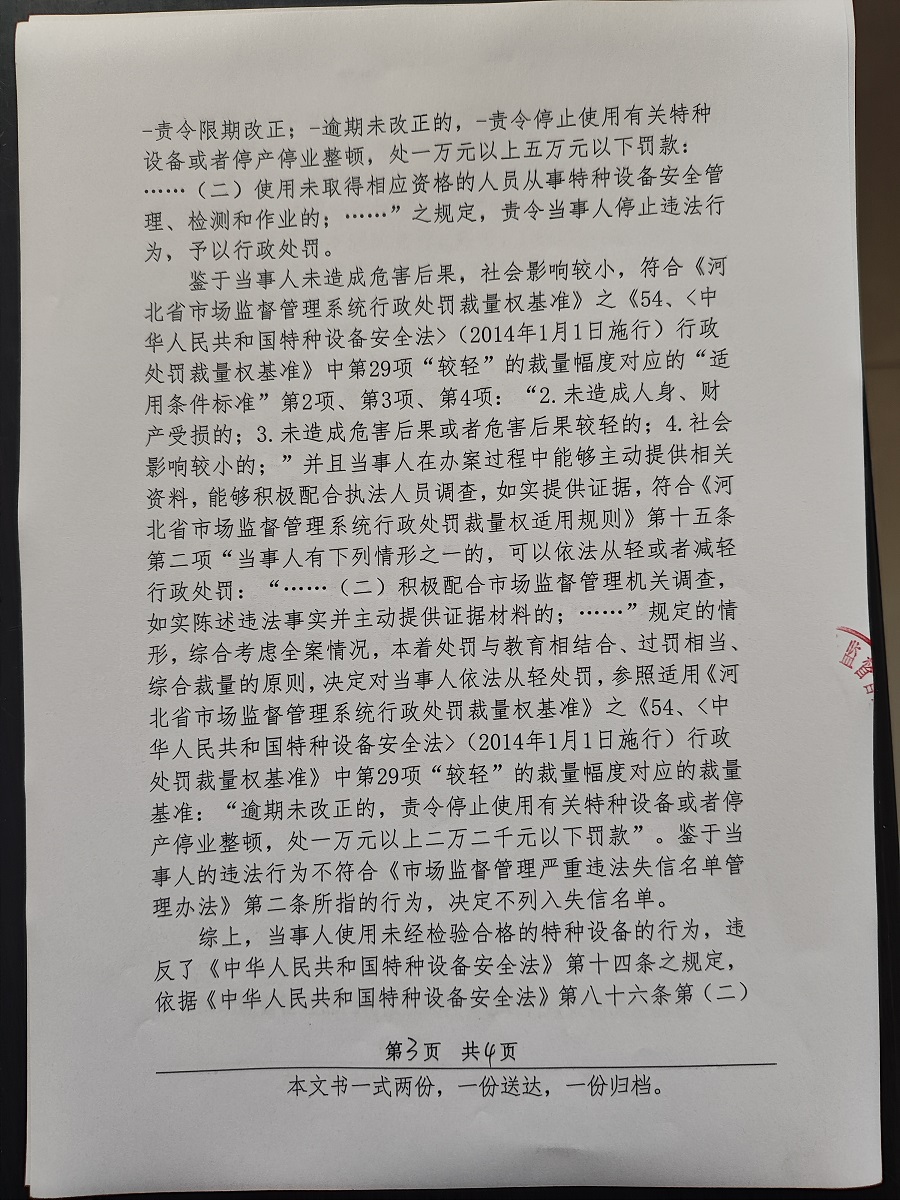 -责令限期改正；-逾期未改正的，-责令停止使用有关特种
设备或者停产停业整顿，处一万元以上五万元以下罚款：
……（二）使用未取得相应资格的人员从事特种设备安全管
理、检测和作业的；……”之规定，责令当事人停止违法行
为，予以行政处罚。
鉴于当事人未造成危害后果，社会影响较小，符合《河
北省市场监督管理系统行政处罚裁量权基准》之《54、<中
华人民共和国特种设备安全法>（2014年1月1日施行）行政
处罚裁量权基准》中第29项“较轻”的裁量幅度对应的“适
用条件标准”第2项、第3项、第4项：“2.未造成人身、财
产受损的；3.未造成危害后果或者危害后果较轻的；4.社会
影响较小的；”并且当事人在办案过程中能够主动提供相关
资料，能够积极配合执法人员调查，如实提供证据，符合《河
北省市场监督管理系统行政处罚裁量权适用规则》第十五条
第二项“当事人有下列情形之一的，可以依法从轻或者减轻
行政处罚：“……（二）积极配合市场监督管理机关调查，
如实陈述违法事实并主动提供证据材料的；……”规定的情
形，综合考虑全案情况，本着处罚与教育相结合、过罚相当、
综合裁量的原则，决定对当事人依法从轻处罚，参照适用《河
北省市场监督管理系统行政处罚裁量权基准》之《54、<中
华人民共和国特种设备安全法>（2014年1月1日施行）行政
处罚裁量权基准》中第29项“较轻”的裁量幅度对应的裁量
基准：“逾期未改正的，责令停止使用有关特种设备或者停
产停业整顿，处一万元以上二万二千元以下罚款”。鉴于当
事人的违法行为不符合《市场监督管理严重违法失信名单管
理办法》第二条所指的行为，决定不列入失信名单。
综上，当事人使用未经检验合格的特种设备的行为，违
反了《中华人民共和国特种设备安全法》第十四条之规定，
依据《中华人民共和国特种设备安全法》第八十六条第（二）
监督
第3页 共4页
本文书一式两份，一份送达，一份归档。